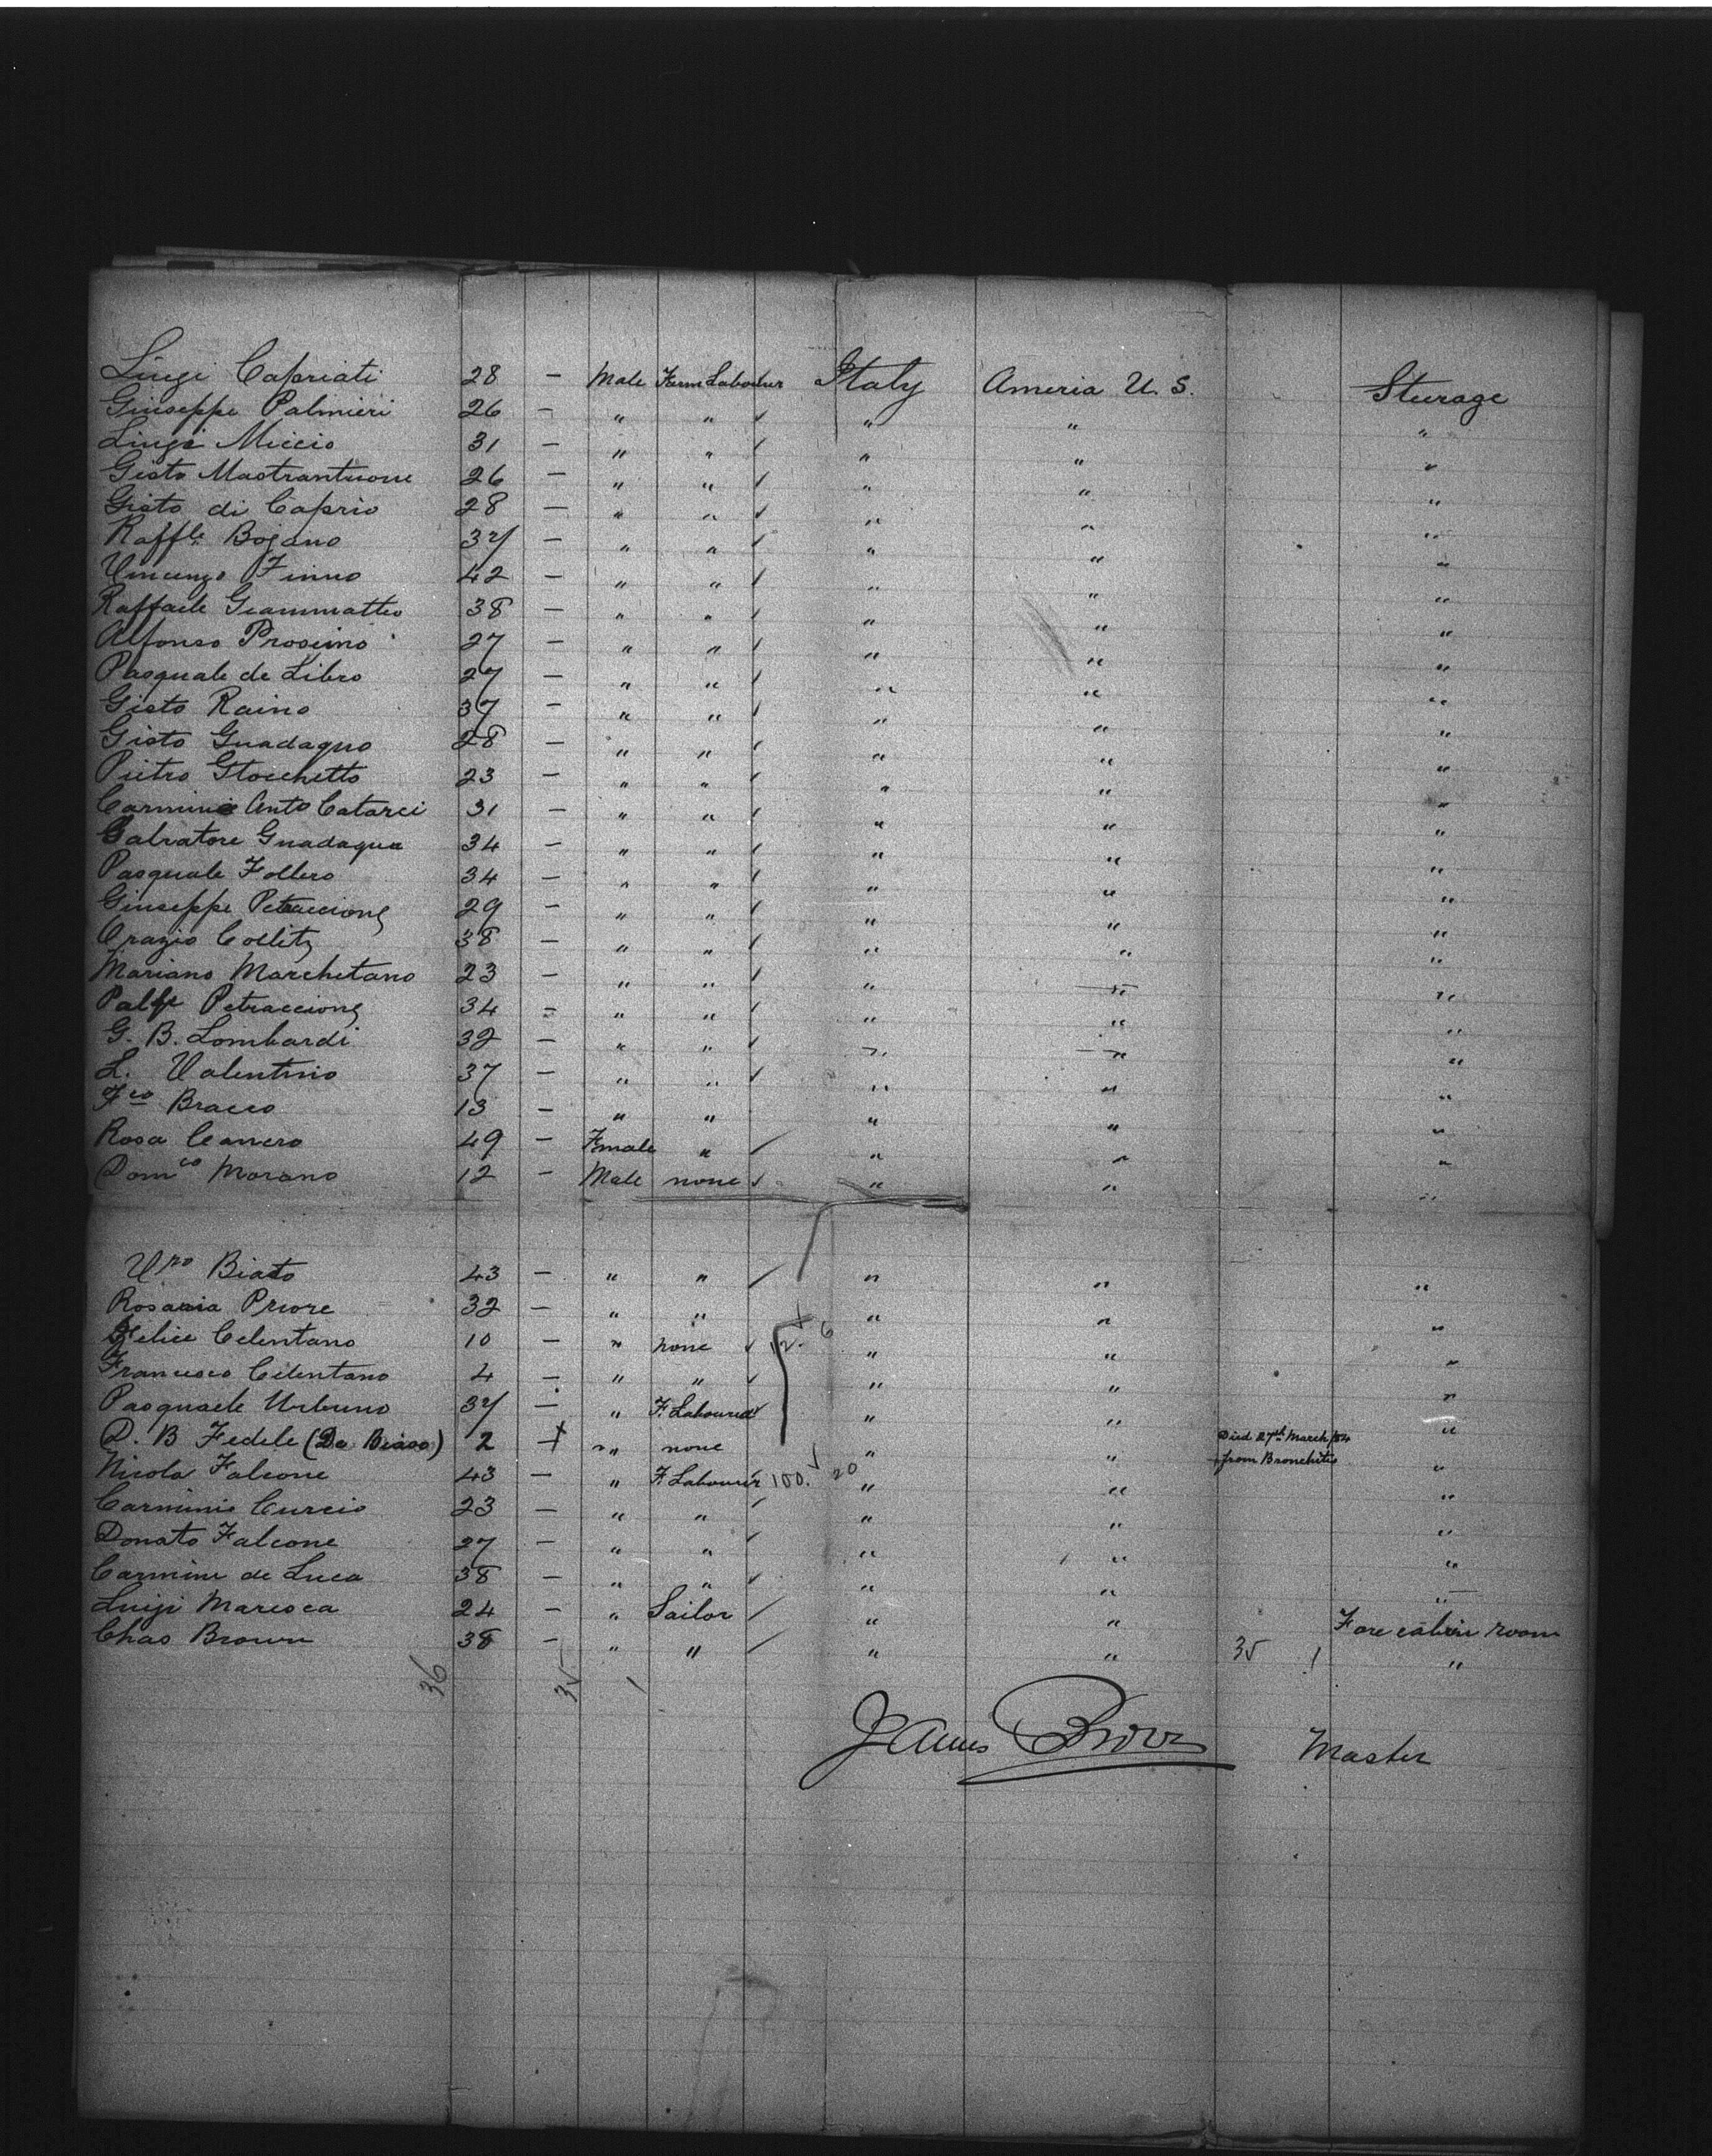 Luigi Capriati 28 — Male Farm Labourer Italy Ameria U. S. Sturage
Giuseppe Palmieri 26 — " " ✓ " " "
Luigi Miccio 31 — " " ✓ " " "
Gisto Mastrantuone 26 — " " ✓ " " "
Gisto di Caprio 28 — " " ✓ " " "
Raffle Bojano 37 — " " ✓ " " "
Vincenzo Finno 42 — " " ✓ " " "
Raffaele Giammatteo 38 — " " ✓ " " "
Alfonso Prosimo 27 — " " ✓ " " "
Pasquale de Libro 27 — " " ✓ " " "
Gisto Raino 37 — " " ✓ " " "
Gisto Guadagno 28 — " " ✓ " " "
Pietro Stocchetto 23 — " " ✓ " " "
Carmine Anto Catarci 31 — " " ✓ " " "
Salvatore Guadagna 34 — " " ✓ " " "
Pasquale Follero 34 — " " ✓ " " "
Giuseppe Petraccione 29 — " " ✓ " " "
Orazio 38 — " " ✓ " " "
Mariano Marchetano 23 — " " ✓ " " "
Petraccione 34 — " " ✓ " " "
G. B. Lombardi 32 — " " ✓ " " "
L. Valentino 37 — " " ✓ " " "
Fco Bracco 13 — " " " " "
Rosa Canero 49 — Fmale " ✓ " " "
Domco Morano 12 — Male none ✓ " " "
Biato 43 — " " ✓ " " "
Rosaria Priore 32 — " " " " "
Felice Celentano 10 — " none ✓ 12. 6 " " "
Francesco Celentano 4 — " " ✓ " " "
Pasquale Urbuno 37 — " F. Labourer ✓ " " "
D. B Fedele (De Biaso) 2 + " none " " Died 27th March/84 "
from Bronchitis
Nicola Falcone 43 — " F. Labourer ✓ 100. 20 " " "
Carminie Curcio 23 — " " ✓ " " "
Donato Falcone 27 — " " ✓ " " "
Carmine de Luca 38 — " " ✓ " " "
Luigi Maresca 24 — " Sailor ✓ " " Fore cabin room
Chas Brown 38 — " " ✓ " " 35 1 "
36 35 1
James Brown Master